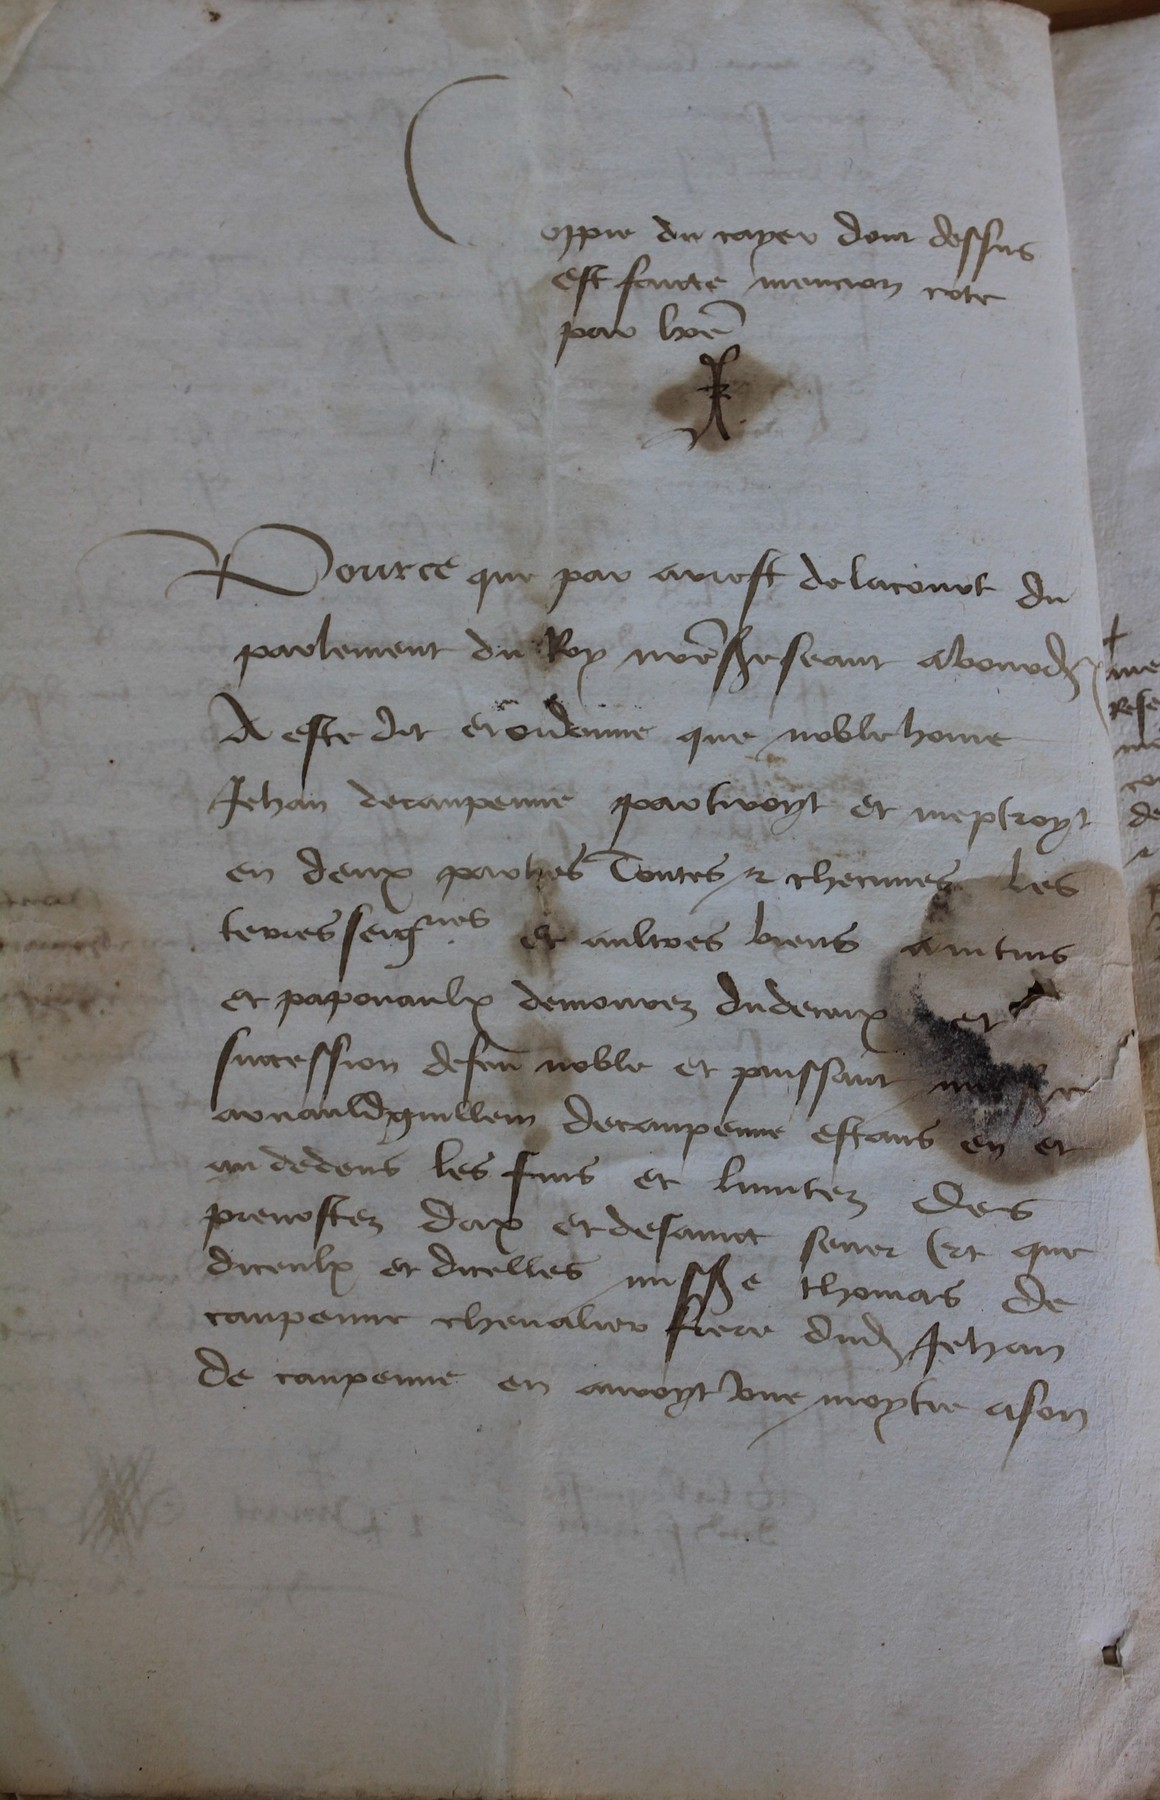 Coppie du cayer dont dessus
est faicte mencion cote
par lrē
I
Pource que par arrest de lacourt du
parlement du Roy nrē sire seant abourdx
A este dit et ordonne que noble home
Jehan decaupenne partiroyt et meptroyt
en deux parties Toutes et checunes les
terres seigries et aultres biens auitins
et papouaulx demourez dudeceix et
succession defeu noble et puissant messe
arnauldguillem decaupenne estans en et
au dedens les fins et limitez Des
preuostez dax et desainct seuer Et que
diceulx et dicelles messe thomas De
caupenne cheualier frere dud Jehan
De caupenne en auroyt Vne moytie ason